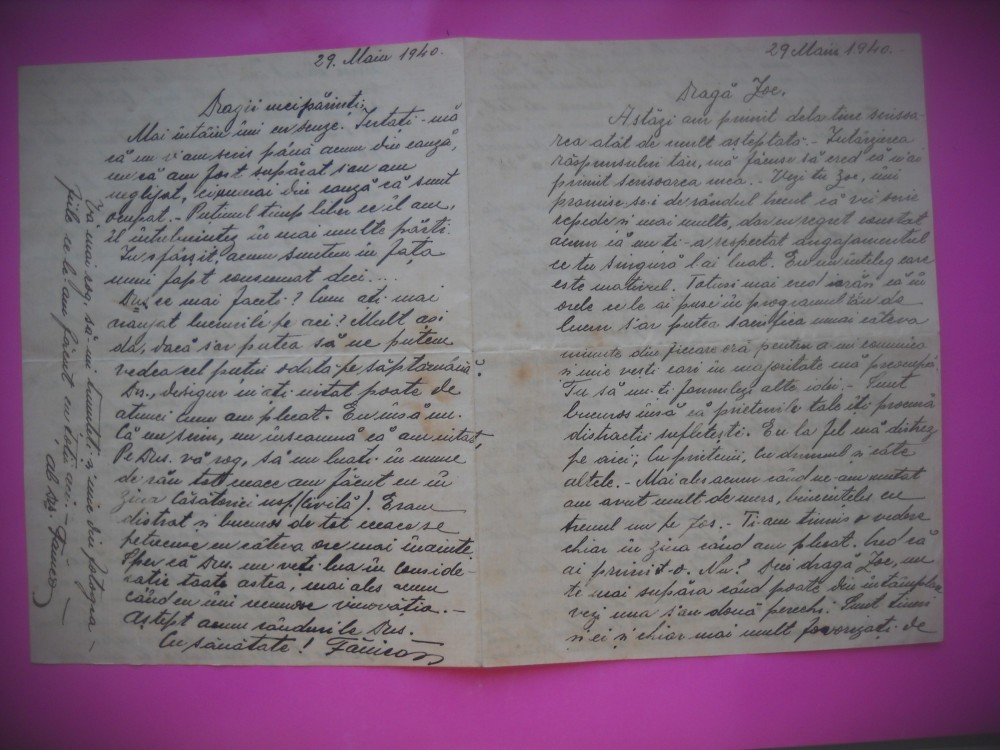 29. Maiu 1940.
Dragii mei părinți,
Mai întâiu îmi cer scuze! Iertați-mă
că nu v'am scris până acum din cauză,
nu că am fost supărat s'au am
neglijat, ci numai din cauză că sunt
ocupat.- Puținul timp liber ce îl am,
îl întrebuințez în mai multe părți.
In sfârșit, acum suntem în fața
unui fapt consumat deci....
Dvs. ce mai faceți? Cum ați mai
aranjat lucrurile pe aci? Mult ași
da, dacă s'ar putea să ne putem
vedea cel puțin odată pe săptămână.
Dvs., desigur m'ați uitat poate de
atunci cum am plecat. Eu însă nu.
Că nu scriu, nu înseamnă că am uitat,
Pe Dvs. vă rog, să nu luați în nume
de rău tot ceace am făcut eu în
ziua căsătoriei (civilă). Eram
distrat și bucuros de tot ceeace se
petrecuse cu câteva ore mai înainte.
Sper că Dvs. nu veți lua în conside-
rație toate astea, mai ales acum
când eu îmi recunosc vinovăția.-
Aștept acum rândurile Dvs.
Cu sănătate! Fănică
Vă mai rog, să-mi trimiteți și mie din fotogra-
fiile ce le-am făcut cu toții aci.-
al Dvs. Fănică
29 Maiu 1940.-
Dragă Joe,
Astăzi am primit dela tine scrisoa-
rea atât de mult așteptată.- Intârzierea
răspunsului tău, mă făcuse să cred că n'ai
primit scrisoarea mea.- Vezi tu Joe, îmi
promise-și de rândul trecut că vei scrie
repede și mai multe, dar cu regret constat
acum că nu ți-a respectat angajamentul
ce tu singură l'ai luat. Eu nu înțeleg care
este motivul. Totuși mai cred iarăși că în
orele ce le ai puse în programul tău de
lucru s'ar putea sacrifica numai câteva
minute din fiecare oră pentru a-mi comunica
și mie vești cari în majoritate mă preocupă.
Tu să nu-ți formulezi alte idei.- Sunt
bucuros însă că prietenile tale îți procură
distracții sufletești. Eu la fel mă distrez
pe aici; Cu prietenii, Cu drumul și câte
altele.- Mai ales acum când ne-am mutat
am avut mult de mers, bineînțeles cu
trenul nu pe jos.- Ti-am trimis o vedere
chiar în ziua când am plecat. Cred că
ai primit-o. Nu? Deci dragă Joe, nu
te mai supăra când poate din întâmplare
vezi una s'au două perechi. Sunt tineri
și ei și chiar mai mult favorizați de